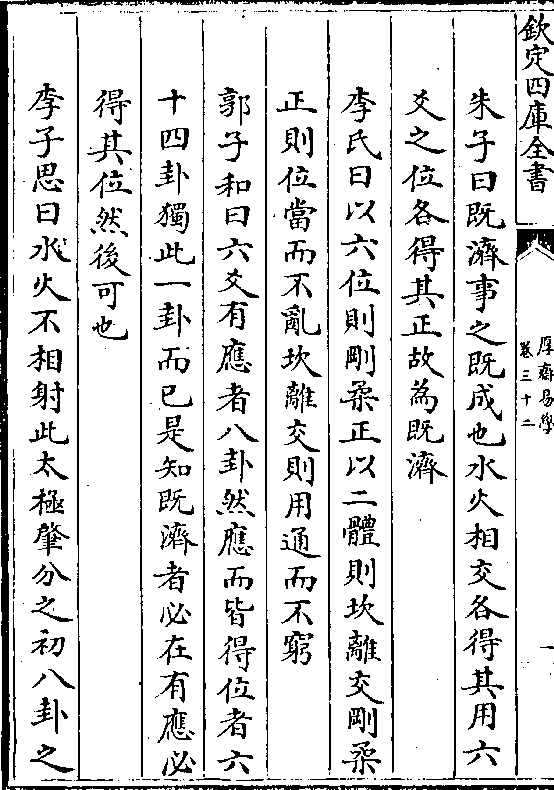 欽定四庫全書
厚齋易學
卷三十二
一
朱子曰既濟事之既成也水火相交各得其用六
爻之位各得其正故為既濟
李氏曰以六位則剛柔正以二體則坎離交剛柔
正則位當而不亂坎離交則用通而不窮
郭子和曰六爻有應者八卦然應而皆得位者六
十四卦獨此一卦而已是知既濟者必在有應必
得其位然後可也
李子思曰水火不相射此太極肇分之初八卦之